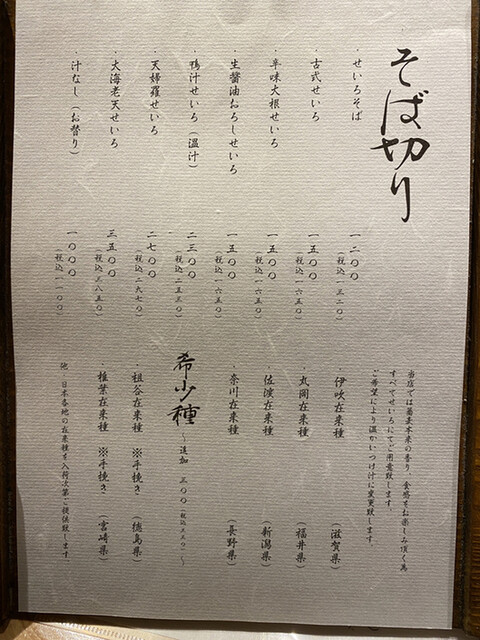 そば切り
・せいろそば 一二〇〇（税込一三二〇）
・古式せいろ 一五〇〇（税込一六五〇）
・辛味大根せいろ 一五〇〇（税込一六五〇）
・生醤油おろしせいろ 一五〇〇（税込一六五〇）
・鴨汁せいろ（温汁） 二三〇〇（税込二五三〇）
・天婦羅せいろ 二七〇〇（税込二九七〇）
・大海老天せいろ 三五〇〇（税込三八五〇）
・汁なし（お替り） 一〇〇〇（税込一一〇〇）
当店では蕎麦本来の香り、食感をお楽しみ頂く為
すべてせいろにてご用意致します。
ご希望により温かいつけ汁に変更致します。
・伊吹在来種 （滋賀県）
・丸岡在来種 （福井県）
・佐渡在来種 （新潟県）
・奈川在来種 （長野県）
希少種 〜追加 三〇〇（税込三三〇）〜
・祖谷在来種 ※手挽き （徳島県）
・椎葉在来種 ※手挽き （宮崎県）
他、日本各地の在来種を入荷次第ご提供致します